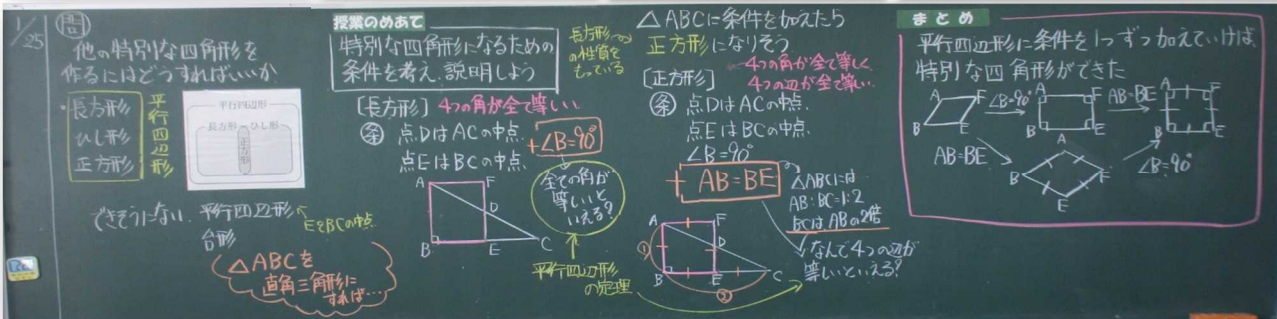 1/25
問
他の特別な四角形を
作るにはどうすればいいか
・長方形
ひし形
正方形
平行四辺形
平行四辺形
長方形
ひし形
正方形
できそうにない
平行四辺形
台形
EをBCの中点
△ABCを
直角三角形に
すれば…
授業のめあて
特別な四角形になるための
条件を考え、説明しよう
[長方形] 4つの角が全て等しい
条 点DはACの中点
点EはBCの中点
+ ∠B=90°
A F
D
B E C
全ての角が
等しいと
いえる?
平行四辺形
の定理
長方形
の性質を
もっている
△ABCに条件を加えたら
正方形になりそう
[正方形]
4つの角が全て等しく
4つの辺が全て等しい
条 点DはACの中点
点EはBCの中点
∠B=90°
+ AB=BE
△ABCは
AB:BC=1:2
BCはABの2倍
なんで4つの辺が
等しいといえる?
A F
① D
B E C
②
まとめ
平行四辺形に条件を1つずつ加えていけば、
特別な四角形ができた
A F ∠B=90° A F AB=BE A F
B E B E B E
AB=BE
A
B F
E
∠B=90°